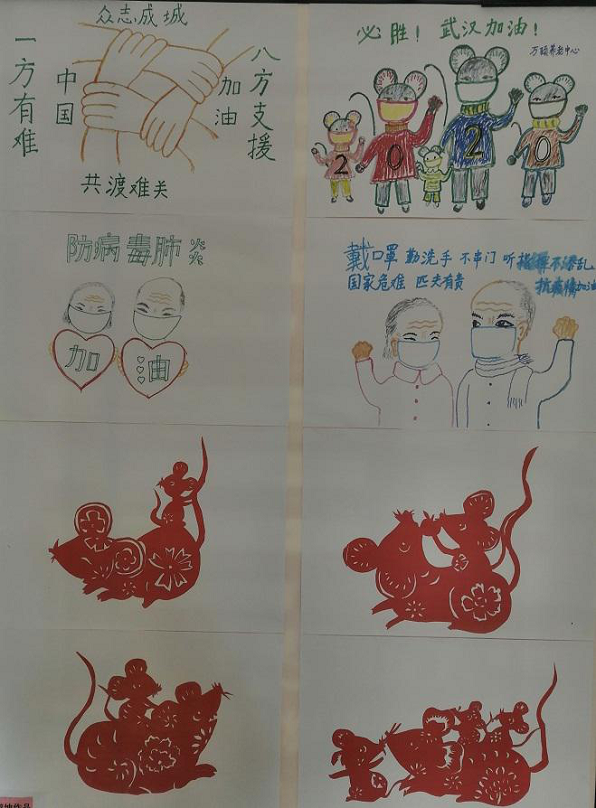 众志成城
一方有难
中国
加油
八方支援
共渡难关
必胜！武汉加油！
万颐养老中心
2020
防病毒肺炎
加油
戴口罩 勤洗手 不串门 听指挥不添乱
国家危难 匹夫有责
抗疫情加油